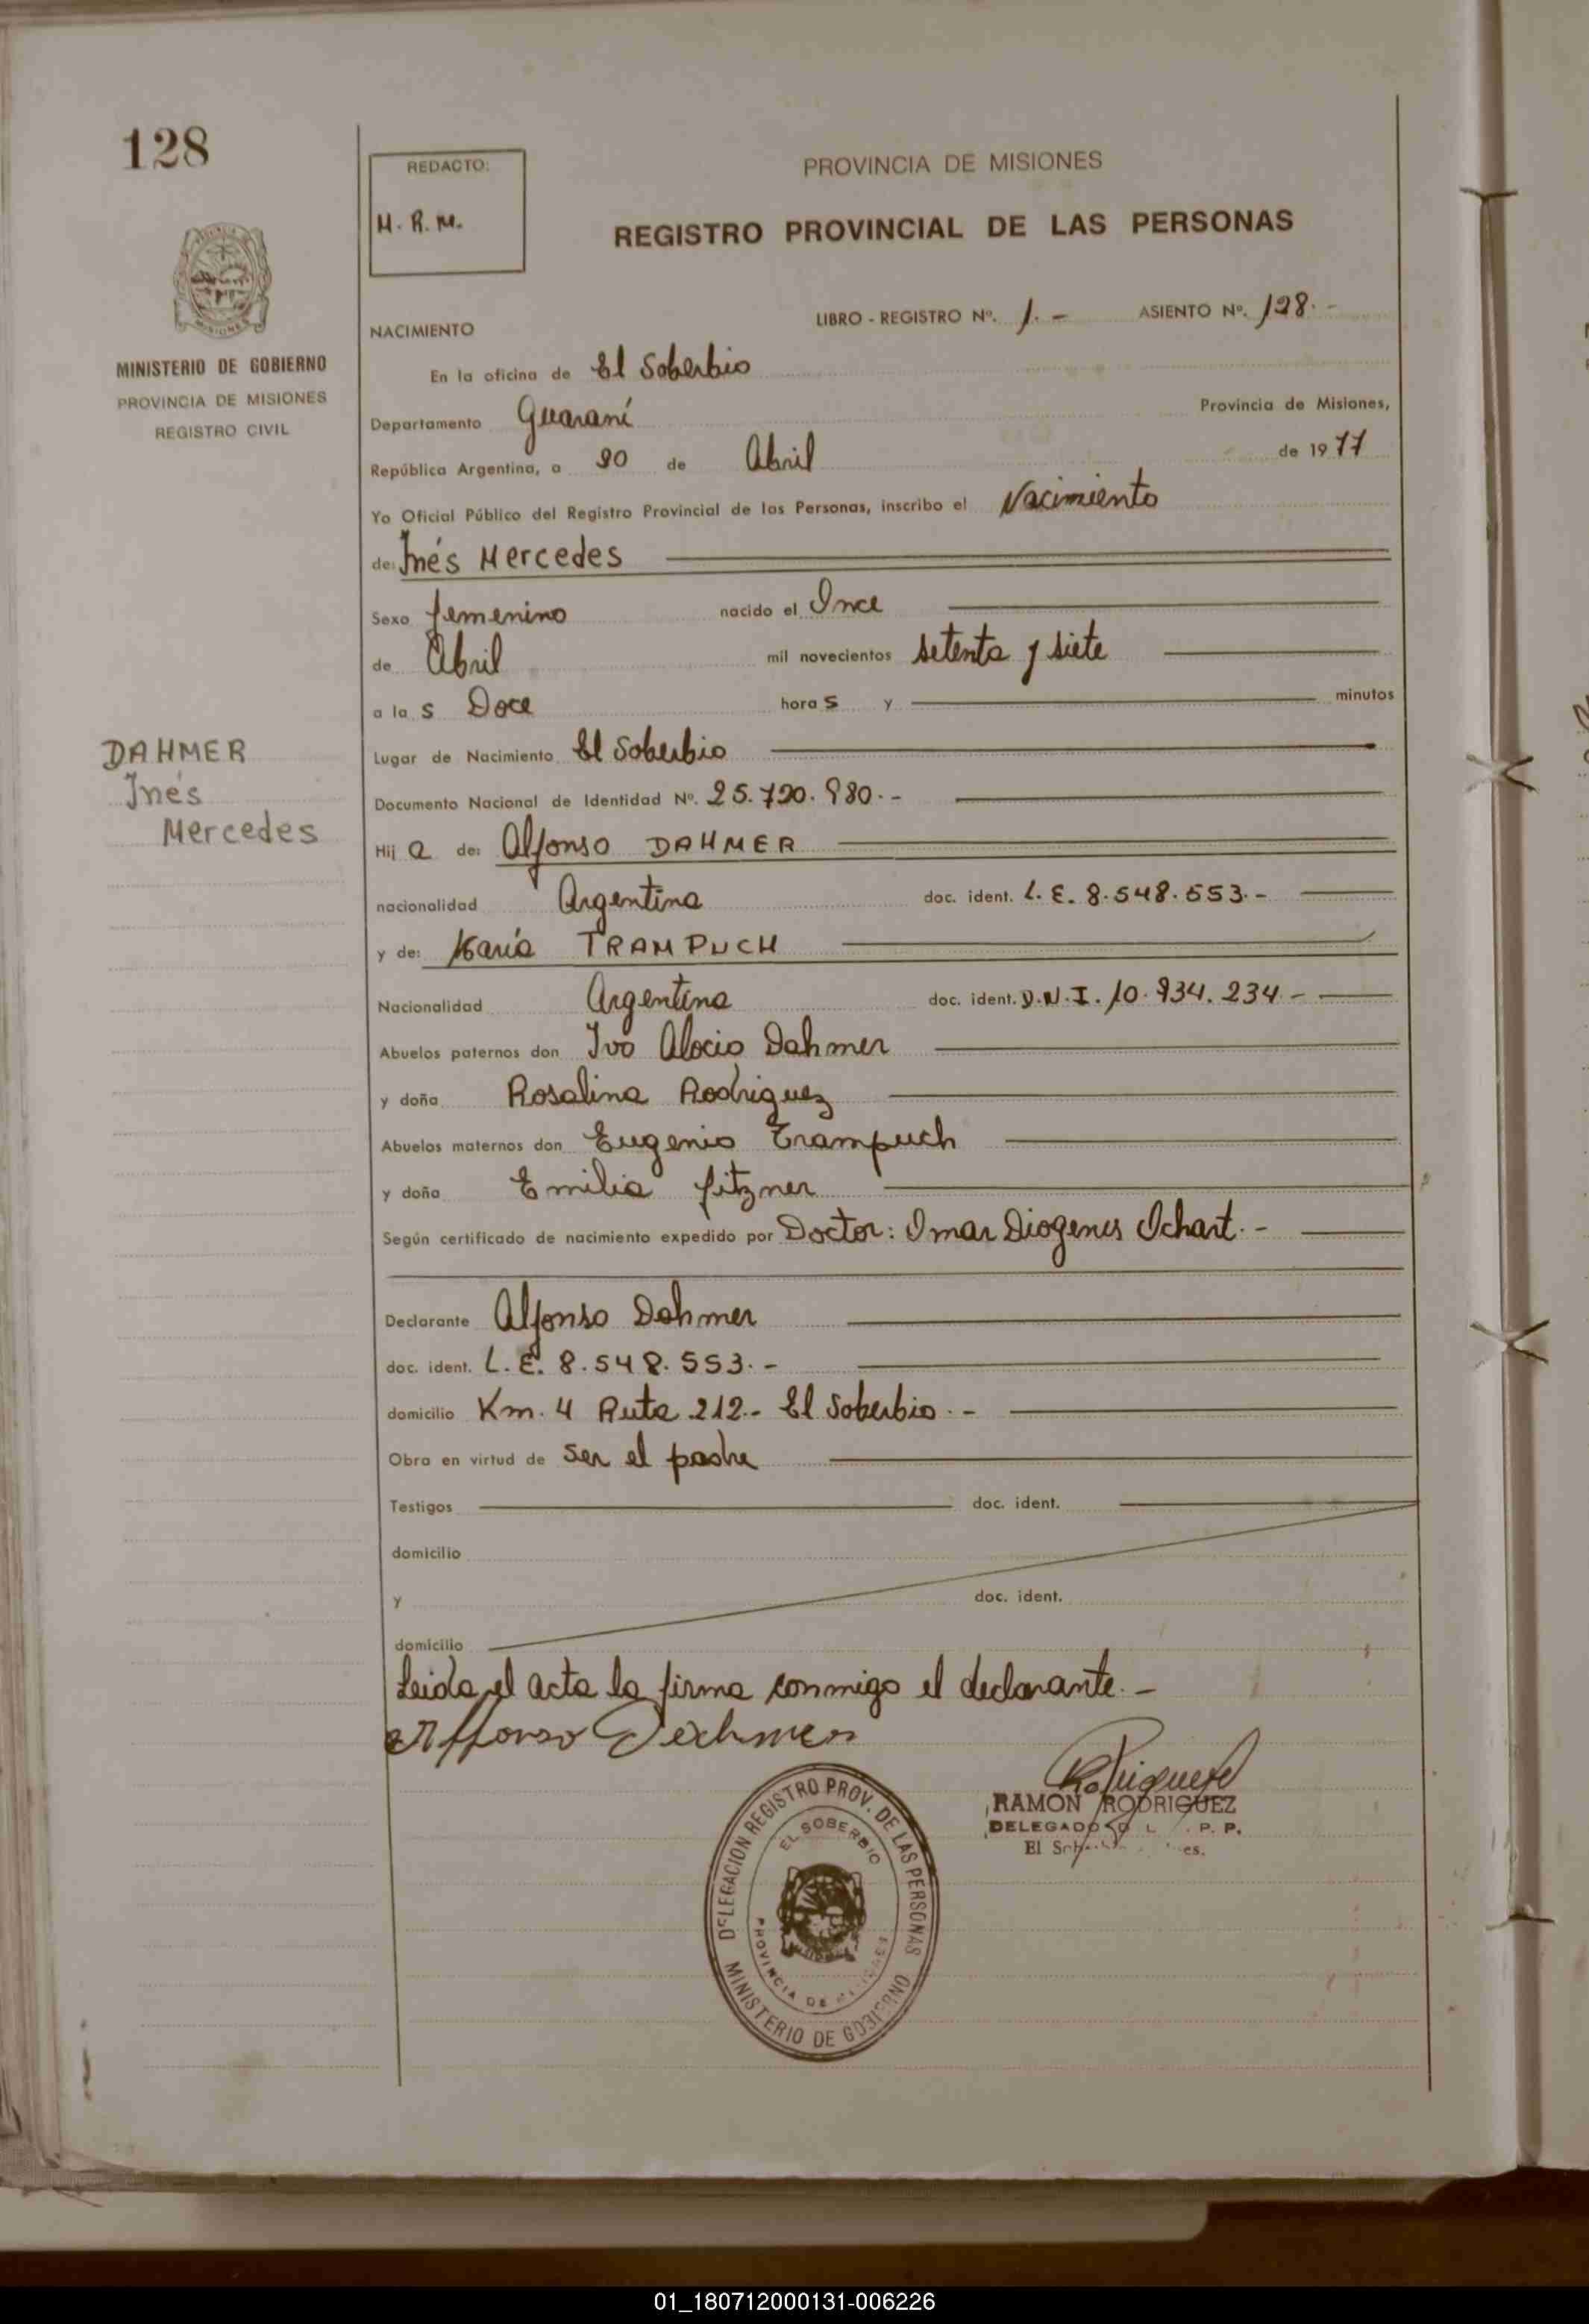 128
REDACTO:
H. R. M.
PROVINCIA DE MISIONES
REGISTRO PROVINCIAL DE LAS PERSONAS
MINISTERIO DE GOBIERNO
PROVINCIA DE MISIONES
REGISTRO CIVIL
NACIMIENTO LIBRO - REGISTRO Nº. 1.- ASIENTO Nº. 128.-
En la oficina de El Soberbio
Departamento Guaraní Provincia de Misiones,
República Argentina, a 20 de Abril de 1977
Yo Oficial Público del Registro Provincial de las Personas, inscribo el Nacimiento
de: Inés Mercedes
Sexo femenino nacido el Once
de Abril mil novecientos setenta y siete
a la s Doce hora s y minutos
Lugar de Nacimiento El Soberbio
DAHMER
Inés
Mercedes
Documento Nacional de Identidad Nº. 25.720.980.-
Hij a de: Alfonso DAHMER
nacionalidad Argentina doc. ident. L. E. 8.548.553.-
y de: María TRAMPUCH
Nacionalidad Argentina doc. ident. D.N.I. 10.934.234-
Abuelos paternos don Ivo Alocio Dahmer
y doña Rosalina Rodriguez
Abuelos maternos don Eugenio Trampuch
y doña Emilia fitzner
Según certificado de nacimiento expedido por Doctor: Omar Diogenes Ochart.-
Declarante Alfonso Dahmer
doc. ident. L. E. 8.548.553.-
domicilio Km. 4 Ruta 212.- El Soberbio.-
Obra en virtud de ser el padre
Testigos doc. ident.
domicilio
y doc. ident.
domicilio
Leida el acta la firma conmigo el declarante.-
Alffonso Dachmer
Rodriguez
RAMON RODRIGUEZ
DELEGADO P. P.
El
DELEGACION REGISTRO PROV. DE LAS PERSONAS
EL SOBERBIO
PROVINCIA DE MISIONES
MINISTERIO DE GOBIERNO
01_180712000131-006226